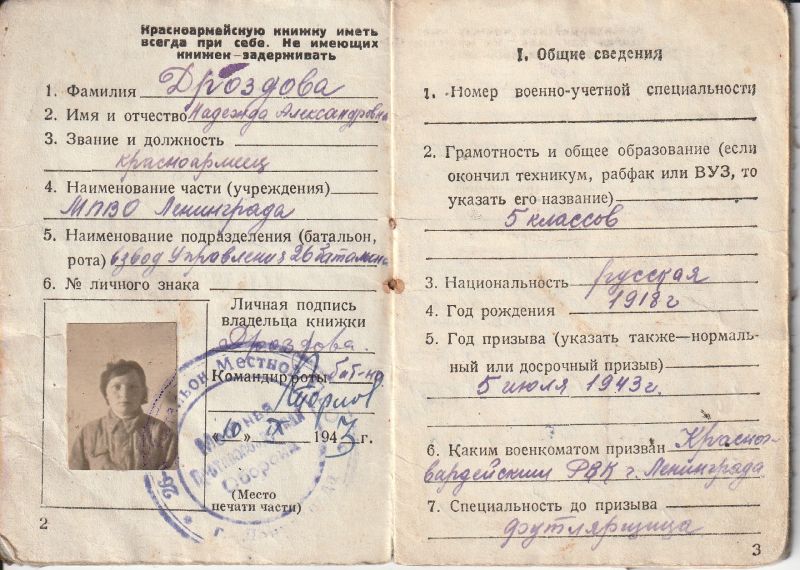 Красноармейскую книжку иметь
всегда при себе. Не имеющих
книжек—задерживать
1. Фамилия Дроздова
2. Имя и отчество Надежда Александровна
3. Звание и должность
красноармеец
4. Наименование части (учреждения)
МПВО Ленинграда
5. Наименование подразделения (батальон,
рота) взвод Управления 26 батальона
6. № личного знака
Личная подпись
владельца книжки
Дроздова.
Командир роты бат-на
1943 г.
(Место
печати части)
2
I. Общие сведения
1. Номер военно-учетной специальности
2. Грамотность и общее образование (если
окончил техникум, рабфак или ВУЗ, то
указать его название)
5 классов
3. Национальность русская
4. Год рождения 1918г
5. Год призыва (указать также—нормаль-
ный или досрочный призыв)
5 июля 1943г.
6. Каким военкоматом призван Красно-
гвардейским РВК г. Ленинграда
7. Специальность до призыва
футлярщица
3